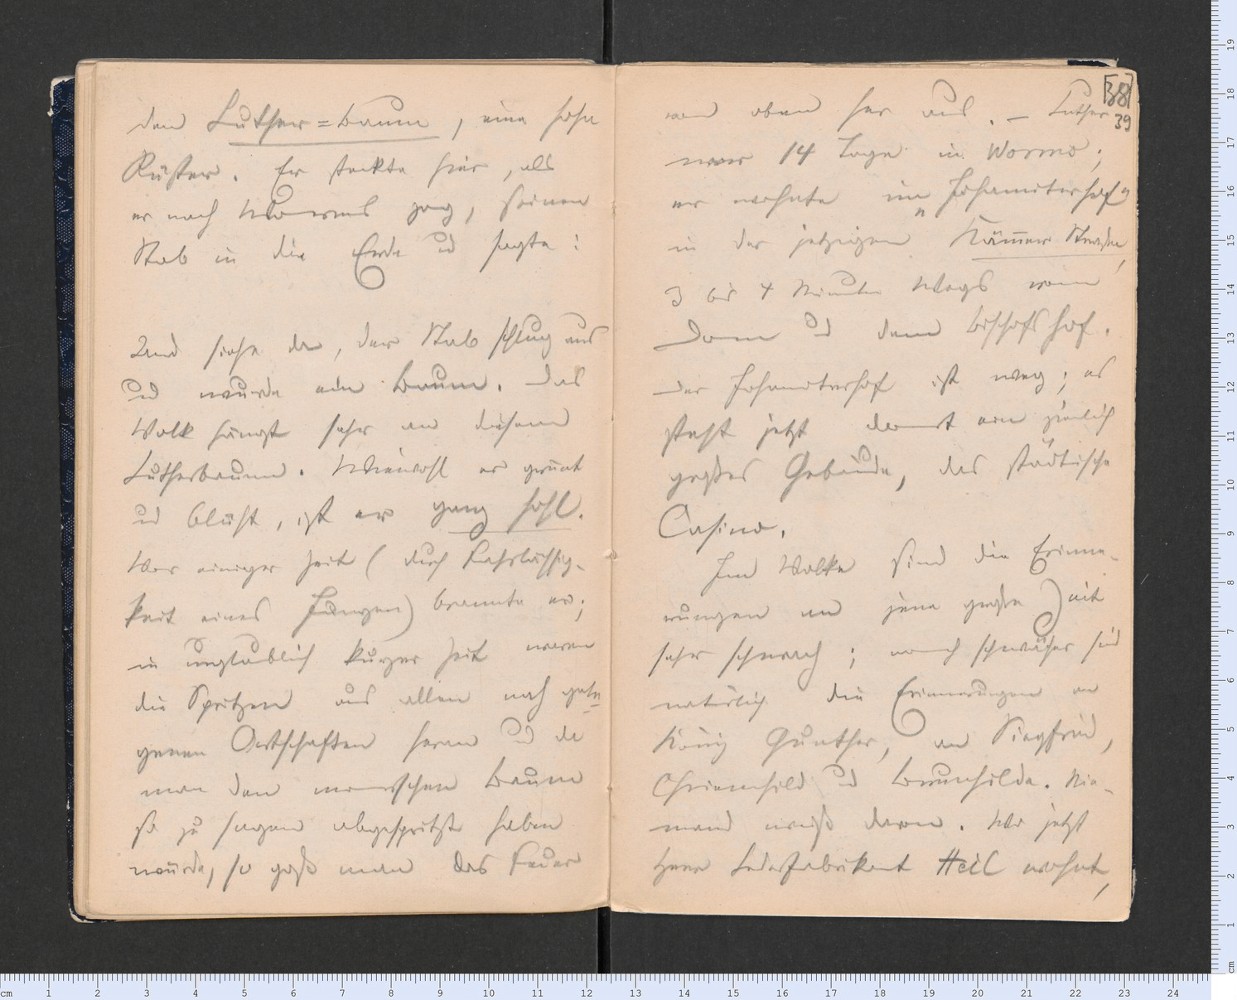 den Luther=Baum, eine hohe
Rüster. Er steckte hier, als
er nach Worms ging, seinen
Stab in die Erde und sagte:
Und siehe da, der Stab schlug aus
und wurde ein Baum. Das
Volk hängt sehr an diesem
Lutherbaum. Wiewohl er grünt
und blüht, ist er ganz hohl.
Vor einiger Zeit (durch Fahrlässig-
keit eines Jungen) brannte er;
in unglaublich kurzer Zeit waren
die Spritzen aus allen nah gele-
genen Ortschaften heran und da
man den morschen Baum
so zu sagen abgespritzt haben
würde, so goß man das Feuer
[38]
39
von oben her aus. – Luther
war 14 Tage in Worms;
er wohnte im „Johanniterhof"
in der jetzigen Kämmer Straße,
3 bis 4 Minuten Wegs vom
Dom und dem Bischofshof.
Der Johanniterhof ist weg; es
steht jetzt dort ein ziemlich
großes Gebäude, das städtische
Casino.
Im Volke sind die Erinne-
rungen an jene große Zeit
sehr schwach; noch schwächer sind
natürlich die Erinnerungen an
König Gunther, an Siegfried,
Chriemhild und Brunhilde. Nie-
mand weiß davon. Wo jetzt
Herr Lederfabrikant Heil wohnt,